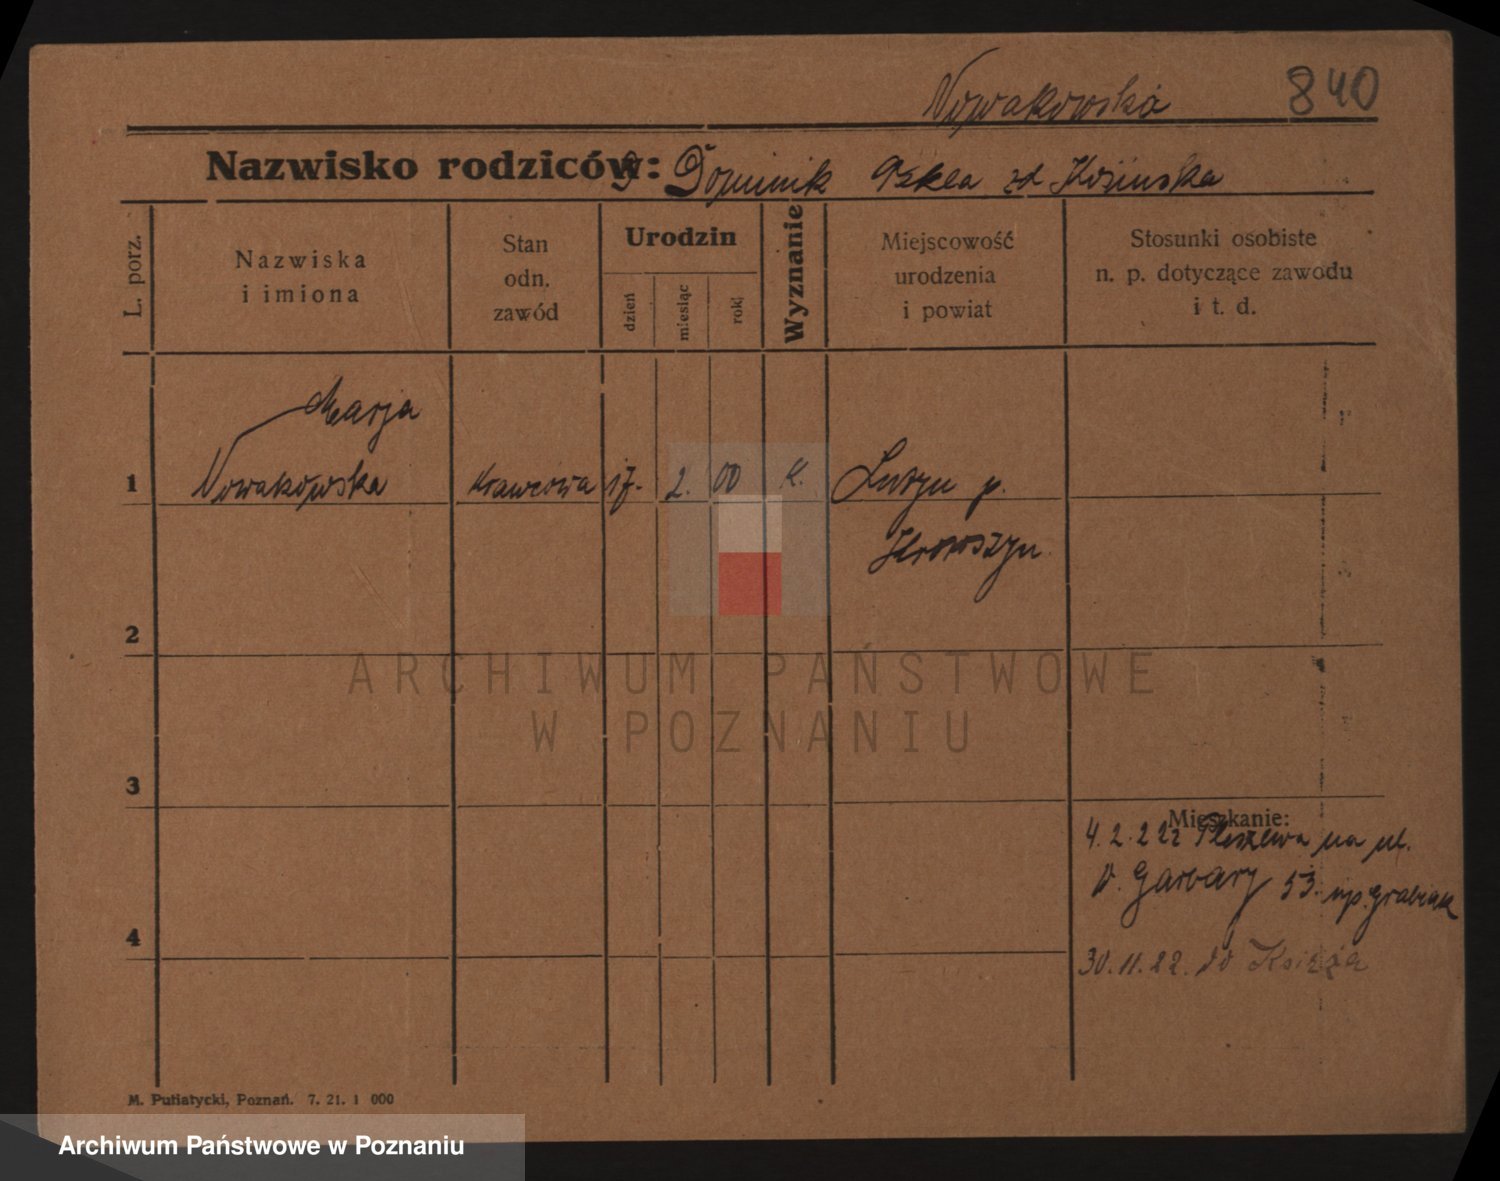 Nowakowska 840
Nazwisko rodziców: Dominik Tekla zd Kosińska
L. porz.
Nazwiska
i imiona
Stan
odn.
zawód
Urodzin
dzień
miesiąc
rok
Wyznanie
Miejscowość
urodzenia
i powiat
Stosunki osobiste
n. p. dotyczące zawodu
i t. d.
Marja
1 Nowakowska krawcowa 17. 2. 00 k. p.
Krotoszyn
2
3
Mieszkanie:
4.2.22 z Pleszewa na ul.
Garbary 53. np. Grabiak
4
30.11.22. do Książa
M. Putiatycki, Poznań. 7. 21. 1 000
ARCHIWUM PAŃSTWOWE
W POZNANIU
Archiwum Państwowe w Poznaniu